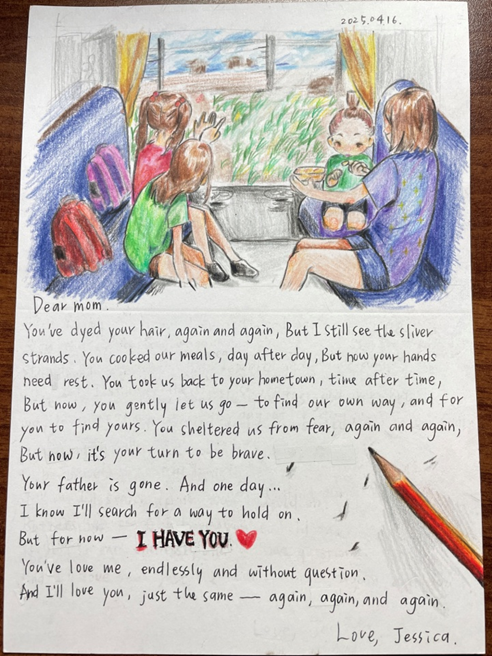 2025.04.16.
Dear mom.
You've dyed your hair, again and again, But I still see the sliver
strands. You cooked our meals, day after day, But now your hands
need rest. You took us back to your hometown, time after time,
But now, you gently let us go — to find our own way, and for
you to find yours. You sheltered us from fear, again and again,
But now, it's your turn to be brave.
Your father is gone. And one day...
I know I'll search for a way to hold on.
But for now — I HAVE YOU.
You've love me, endlessly and without question.
And I'll love you, just the same — again, again, and again.
Love, Jessica.